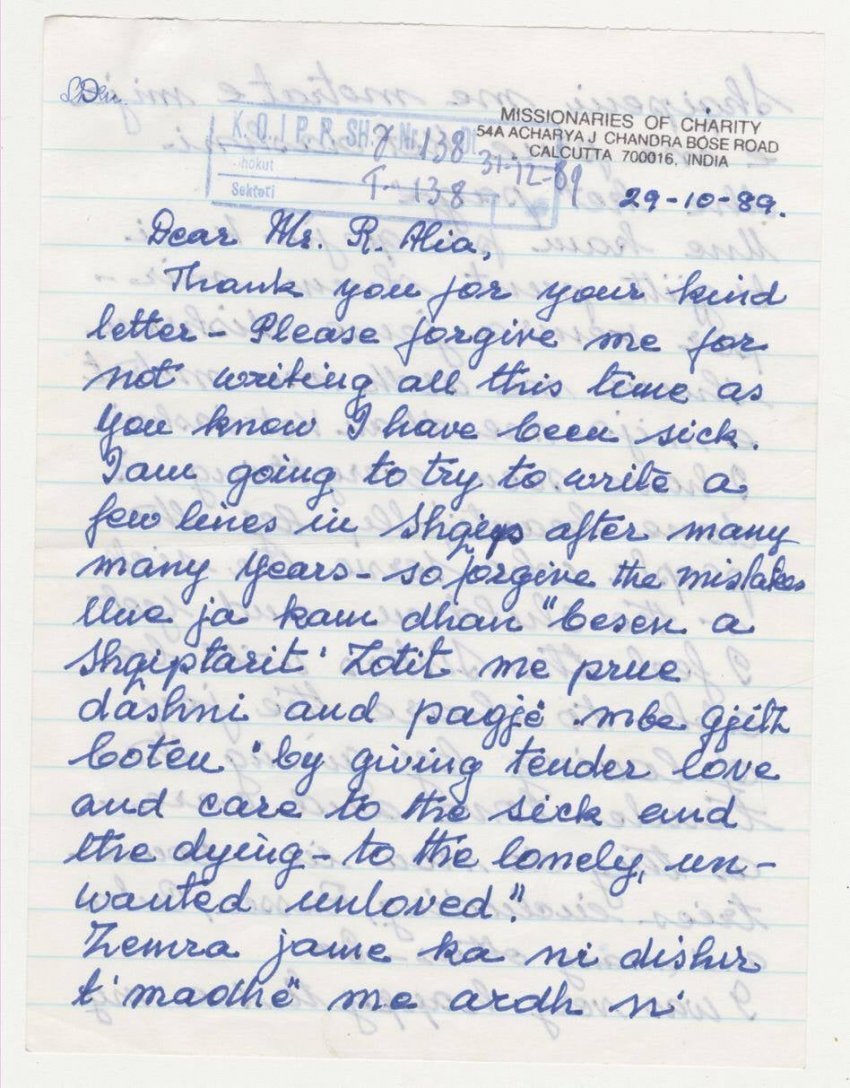 MISSIONARIES OF CHARITY
54A ACHARYA J CHANDRA BOSE ROAD
CALCUTTA 700016, INDIA
K.Q.I P.R.SH. Nr. 138
31-12-89
Sektori T. 138
29-10-89.
Dear Mr. R. Alia,
Thank you for your kind
letter - Please forgive me for
not writing all this time as
you know I have been sick.
I am going to try to write a
few lines in Shqip after many
many years - so forgive the mistakes
Une ja kam dhan "besen a
Shqiptarit" Zotit me prue
dâshni and paqjë mbe gjith
boten "by giving tender love
and care to the sick and
the dying - to the lonely, un-
wanted unloved".
Zemra jame ka ni dishir
t'madhë me ardh ni